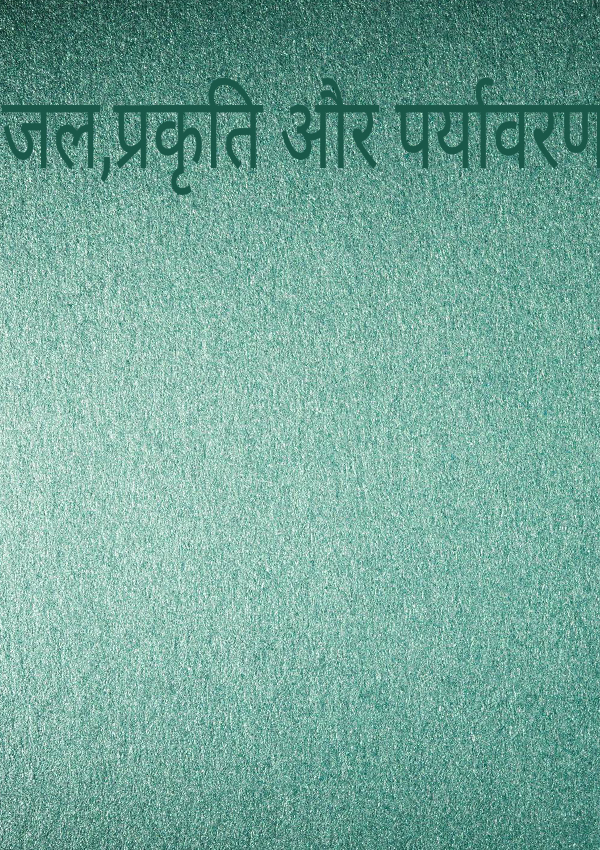 जल,प्रकृति और पर्यावरण